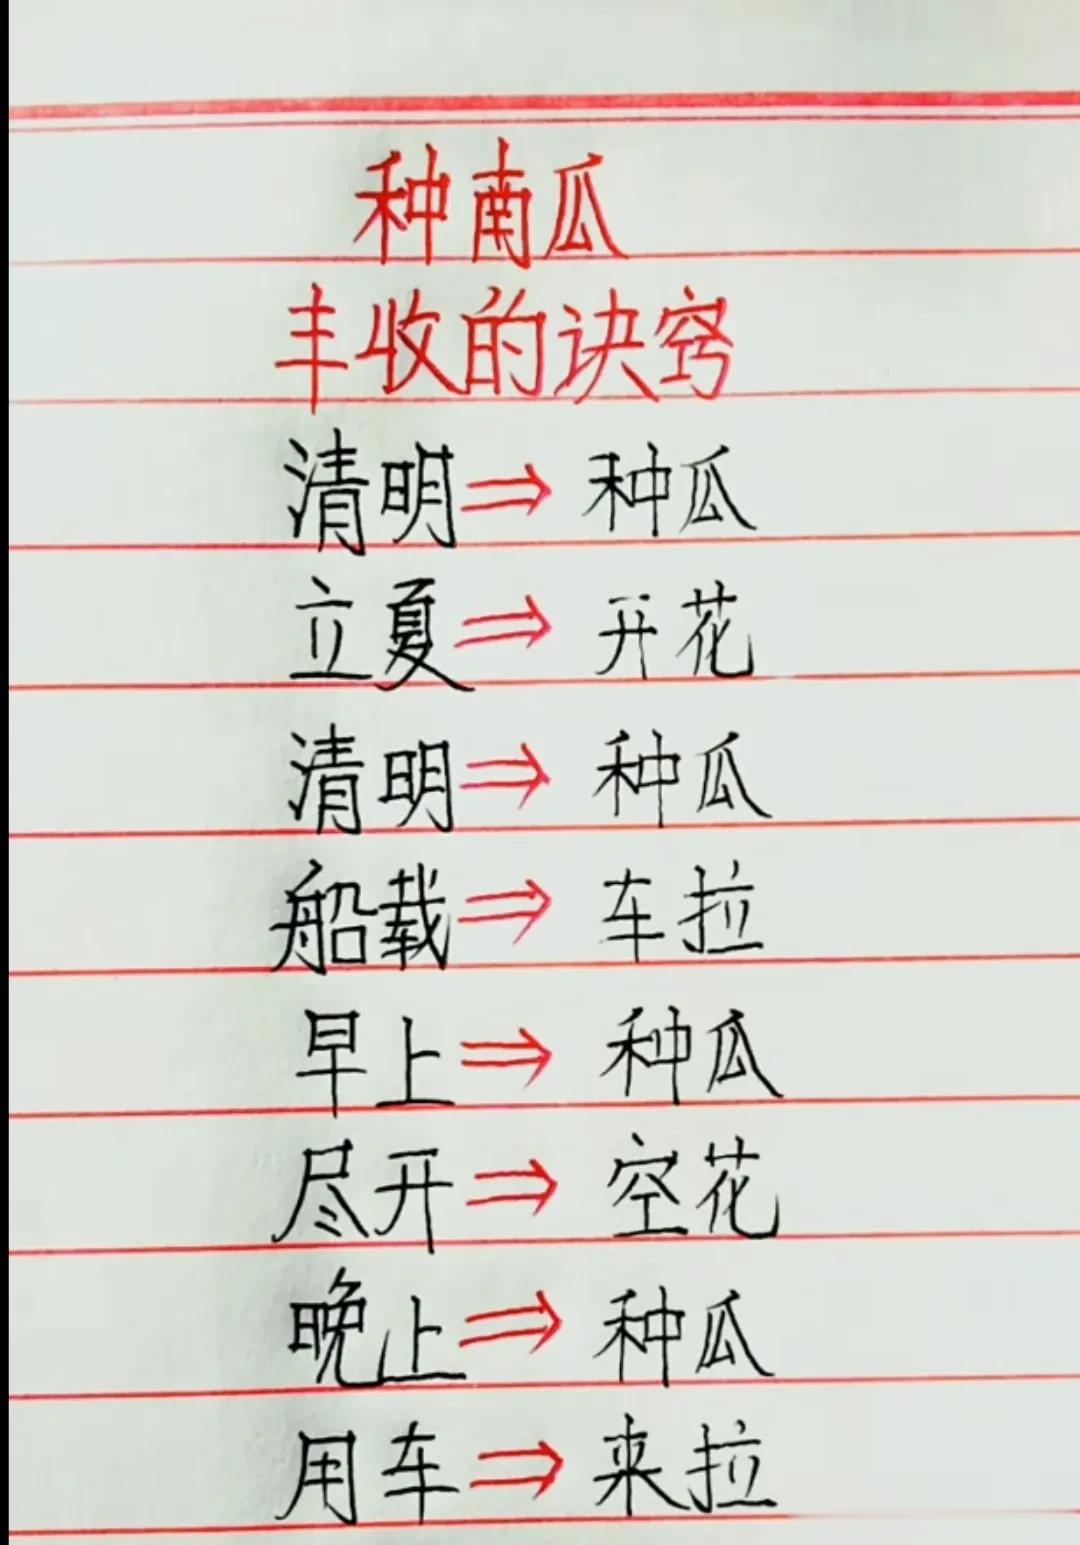 种南瓜
丰收的诀窍
清明⇒种瓜
立夏⇒开花
清明⇒种瓜
船载⇒车拉
早上⇒种瓜
尽开⇒空花
晚上⇒种瓜
用车⇒来拉